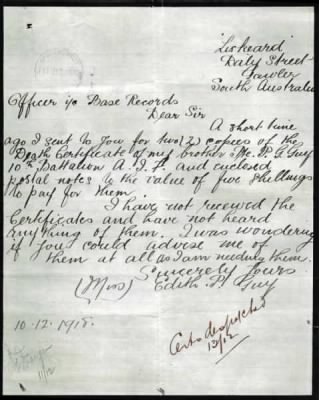 'Liskeard'
Daly Street
Gawler
South Australia
Officer i/c Base Records
Dear Sir
A short time
ago I sent to you for two (2) copies of the
Death Certificate of my brother Pte. P. G. Guy
10th Battalion A.I.F. and enclosed
postal notes to the value of five shillings
to pay for them.
I have not received the
Certificates and have not heard
anything of them. I was wondering
if you could advise me of
them at all as I am needing them.
Sincerely Yours
(Miss) Edith P. Guy
10.12.1918.
Certs despatched
12/12
11/12